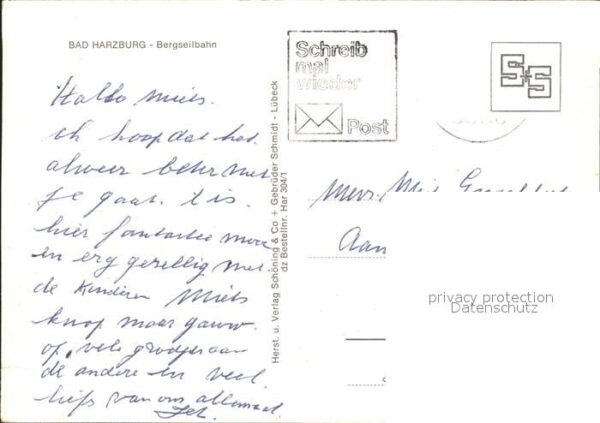 BAD HARZBURG - Bergseilbahn
Hallo Miets.
ik hoop dat het
alweer beter met
je gaat. t is
hier fantastis mooi
en erg gezellig met
de Kinderen Miets
knap maar gauw
op, vele groetjes aan
de andere en veel
liefs van ons allemaal.
Herst. u. Verlag Schöning & Co + Gebrüder Schmidt - Lübeck
dz Bestellnr. Har 304/1
Schreib
mal
wieder
Post
S+S
Mevr.
Aan
privacy protection
Datenschutz